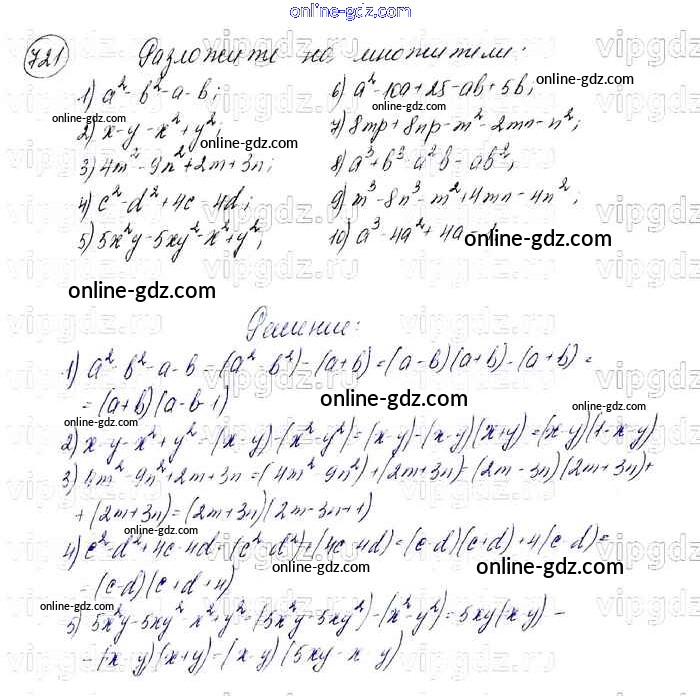 online-gdz.com
721 Разложите на множители:
1) a² - b² - a - b;
2) x - y - x² + y²;
3) 4m² - 9n² + 2m + 3n;
4) c² - d² + 4c - 4d;
5) 5x²y - 5xy² - x² + y²;
6) a² - 10a + 25 - ab + 5b;
7) 8mp + 8np - m² - 2mn - n²;
8) a³ + b³ - a²b - ab²;
9) m³ - 8n³ - m² + 4mn - 4n²;
10) a³ - 4a² + 4a -
online-gdz.com
online-gdz.com
online-gdz.com
online-gdz.com
online-gdz.com
online-gdz.com
online-gdz.com
Решение:
1) a² - b² - a - b = (a² - b²) - (a + b) = (a - b)(a + b) - (a + b) =
= (a + b)(a - b - 1)
online-gdz.com
online-gdz.com
online-gdz.com
2) x - y - x² + y² = (x - y) - (x² - y²) = (x - y) - (x - y)(x + y) = (x - y)(1 - x - y)
3) 4m² - 9n² + 2m + 3n = (4m² - 9n²) + (2m + 3n) = (2m - 3n)(2m + 3n) +
+ (2m + 3n) = (2m + 3n)(2m - 3n + 1)
online-gdz.com
4) c² - d² + 4c - 4d = (c² - d²) + (4c - 4d) = (c - d)(c + d) + 4(c - d) =
= (c - d)(c + d + 4)
online-gdz.com
online-gdz.com
online-gdz.com
5) 5x²y - 5xy² - x² + y² = (5x²y - 5xy²) - (x² - y²) = 5xy(x - y) -
- (x - y)(x + y) = (x - y)(5xy - x - y)
online-gdz.com